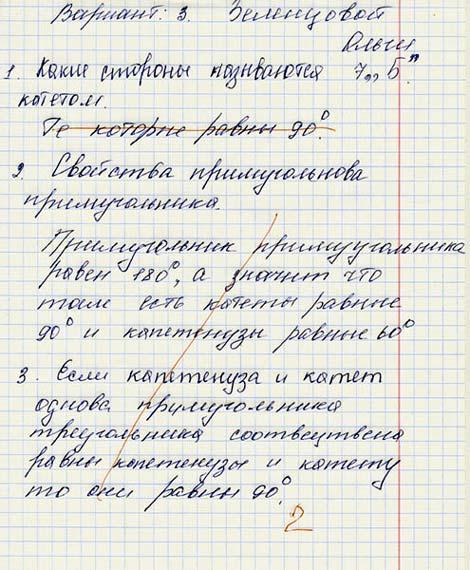 Вариант: 3. Зеленцовой
Ольги
1. Какие стороны называются 7 „Б"
катетом.
Те которые равны 90°.
2. Свойства примугольнова
примугольника.
Примугольник примуугольника
равен 180°, а значит что
там есть катеты равные
90° и капетенузы равные 60°
3. Если капетенуза и катет
однова прумугольника
треугольника соотвеутвена
равны капетенузы и катету
то они равны 90°.
2